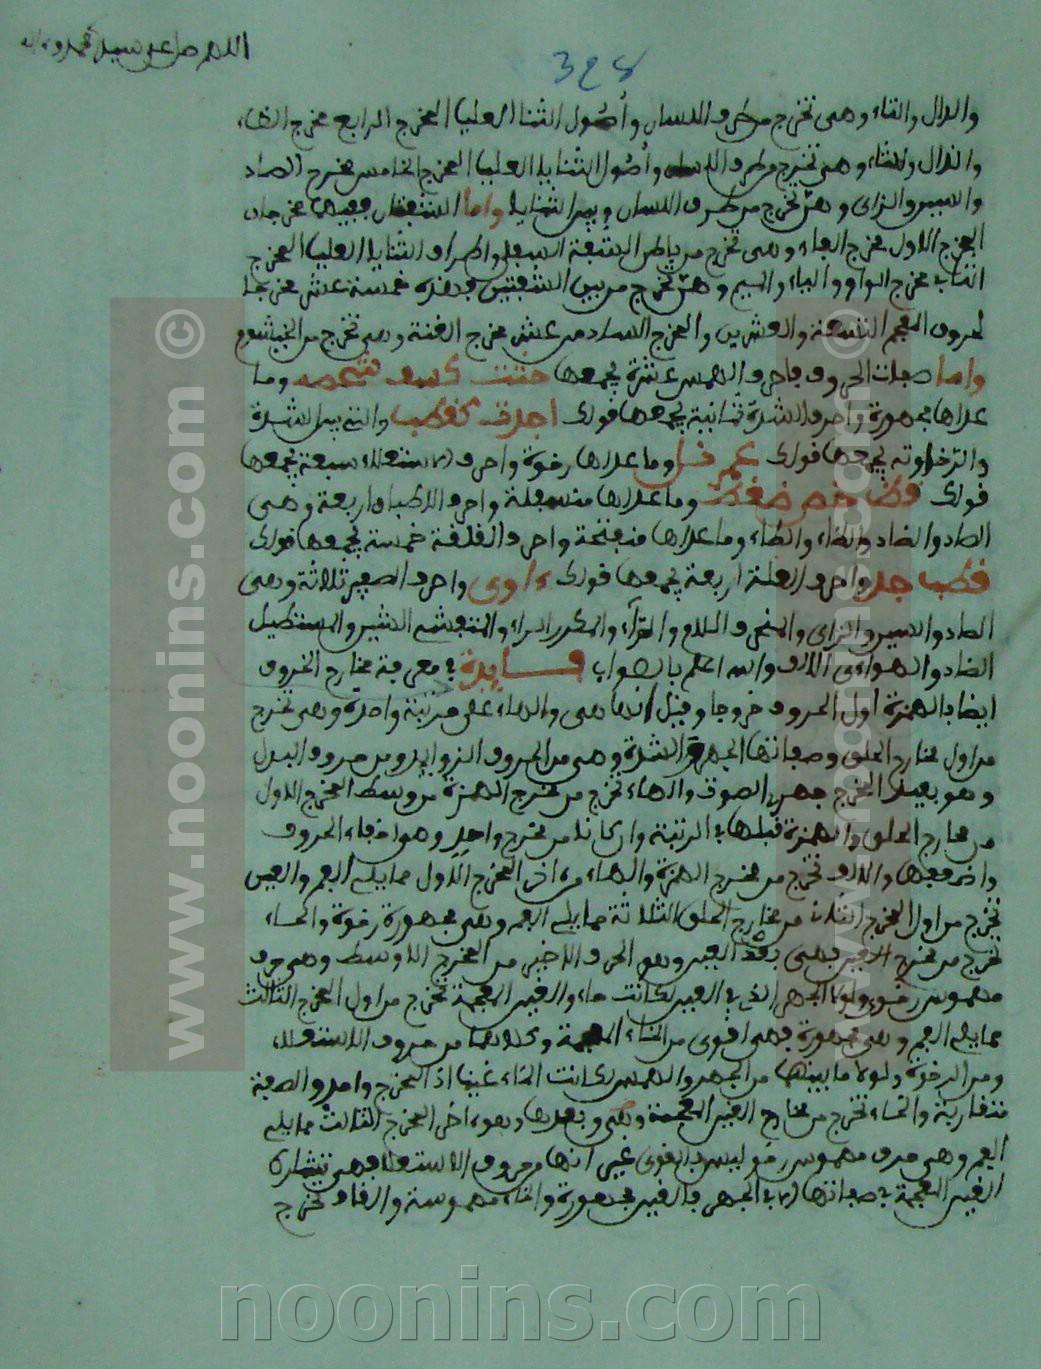 اللهم صل على سيدنا محمد وءاله
والدال والتاء وهى تخرج من طرف اللسان وأصول الثنايا العليا المخرج الرابع مخرج الظاء
والذال والثاء وهى تخرج من طرف اللسان وأصول الثنايا العليا المخرج الخامس مخرج الصاد
والسين والزاى وهن تخرج من طرف اللسان وبين الثنايا واما الشفتان ففيهما مخرجان
المخرج الاول مخرج الفاء وهى تخرج من باطن الشفة السفلى واطراف الثنايا العليا المخرج
الثانى مخرج الواو والباء والميم وهن تخرج من بين الشفتين فهذه خمسة عشر مخرجا
لحروف المعجم التسعة والعشرين والمخرج السادس عشر مخرج الغنة وهى تخرج من الخيشوم
واما صفات الحروف فاحرف الهمس عشرة يجمعها حثت كسف شخصه وما
عداها مجهورة واحرف الشدة ثمانية يجمعها قولك اجدت كقطب والتى بين الشدة
والرخاوة يجمعها قولك وما عداها رخوة واحرف الاستعلاء سبعة يجمعها
قولك قظ خص ضغط وما عداها مستفلة واحرف الاطباق اربعة وهى
الصاد والضاد والطاء والظاء وما عداها منفتحة واحرف القلقلة خمسة يجمعها قولك
قطب جد واحرف العلة اربعة يجمعها قولك ءاوى واحرف الصفير ثلاثة وهى
الصاد والسين والزاى والمنحرف اللام والراء والمكرر الراء والمتفشى الشين والمستطيل
الضاد والهواءى الالف والله اعلم بالصواب فايدة فى معرفة مخارج الحروف
ايضا الهمزة اول الحروف خروجا وقيل انها هى والهاء على مرتبة واحدة وهى تخرج
من اول مخارج الحلق وصفاتها الجهر والشدة وهى من الحروف الزوايد ومن حروف البدل
وهو بعيد المخرج جهرى الصوت والهاء تخرج من مخرج الهمزة من وسط المخرج الاول
من مخارج الحلق والهمزة قبلها فى الرتبة وان كانا من مخرج واحد وهو اخفاء الحروف
واضعفها والالف تخرج من مخرج الهمزة والهاء من اخر المخرج الاول مما يلى الفم والعين
تخرج من اول المخرج الثانى من مخارج الحلق الثلاثة مما يلى الفم وهى مجهورة رخوة والحاء
تخرج من مخرج العين فهى بعد العين وهو الحرف الاخير من المخرج الاوسط وهى حرف
مهموس رخو ولولا الجهر الذى فى العين لكانت حاء والغين المعجمة تخرج من اول المخرج الثالث
مما يلى الفم وهى مجهورة فهى اقوى من الخاء المعجمة وكلاهما من حروف الاستعلاء
ومن الرخوة ولولا ما بينهما من الجهر والهمس لكانت الخاء غينا اذ المخرج واحد والصفة
متقاربة والخاء تخرج من مخارج الغين المعجمة وهى بعدها وهو اخر المخرج الثالث مما يلى
الفم وهى حرف مهموس رخو ليس بالقوى غير انها من حروف الاستعلاء فهى تشارك
الغين المعجمة فى صفاتها الا فى الجهر فالغين مجهورة والخاء مهموسة والقاف تخرج